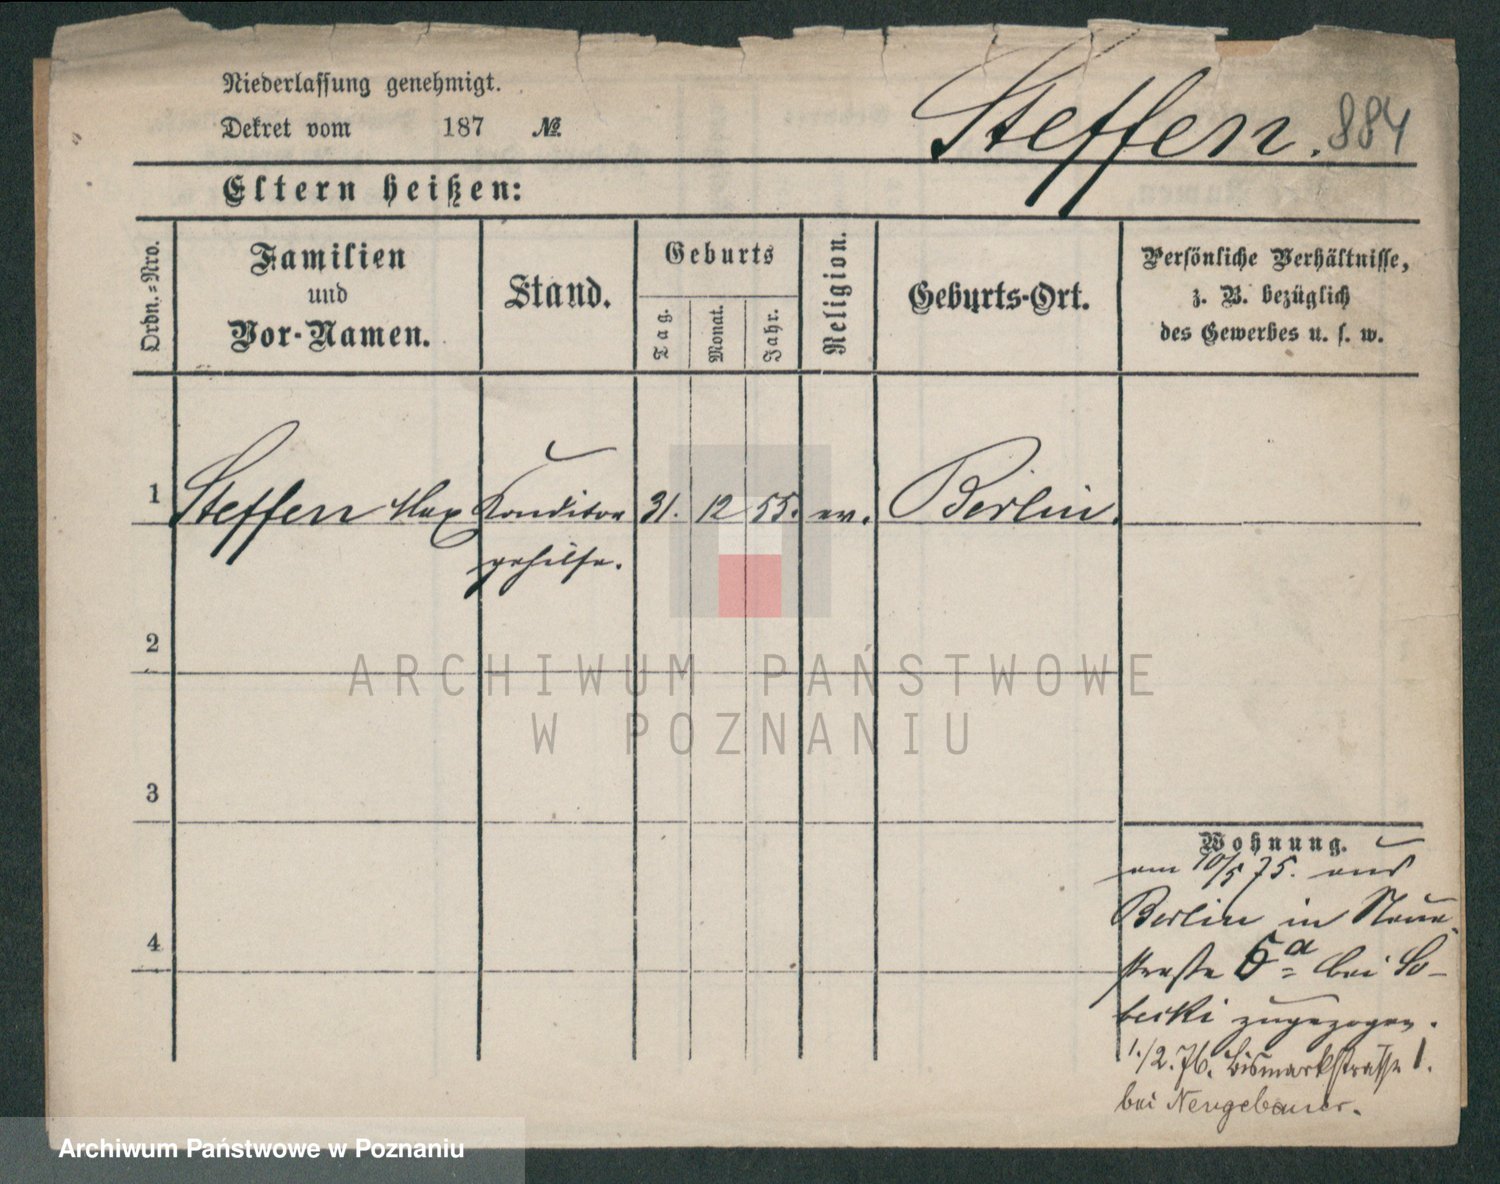 Niederlassung genehmigt.
Dekret vom 187 №
Steffen. 884
Eltern heißen:
Ordn.-Nro.
Familien
und
Vor-Namen.
Stand.
Geburts
Tag.
Monat.
Jahr.
Religion.
Geburts-Ort.
Persönliche Verhältnisse,
z. B. bezüglich
des Gewerbes u. s. w.
1 Steffen Max Konditor 31. 12 55. ev. Berlin.
gehilfe.
2
ARCHIWUM PAŃSTWOWE
W POZNANIU
3
Wohnung.
am 10/5 75. aus
Berlin in Neue
4
straße 5a bei So-
becki zugezogen.
1./2. 76. Bismarkstrasse 1.
bei Neugebauer.
Archiwum Państwowe w Poznaniu